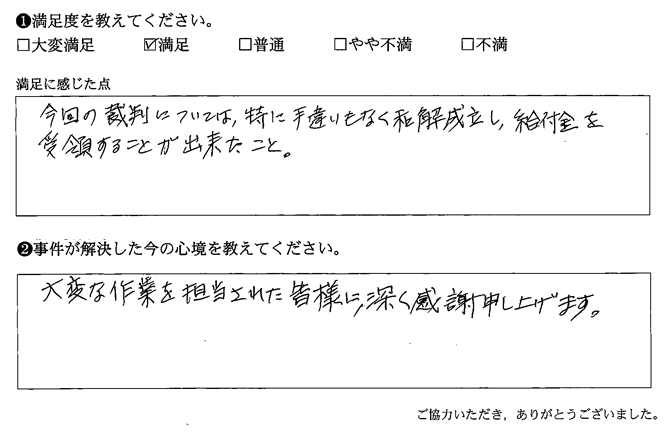 ❶満足度を教えてください。
□大変満足 ☑満足 □普通 □やや不満 □不満
満足に感じた点
今回の裁判については、特に手違いもなく和解成立し、給付金を
受領することが出来たこと。
❷事件が解決した今の心境を教えてください。
大変な作業を担当された皆様に、深く感謝申し上げます。
ご協力いただき，ありがとうございました。